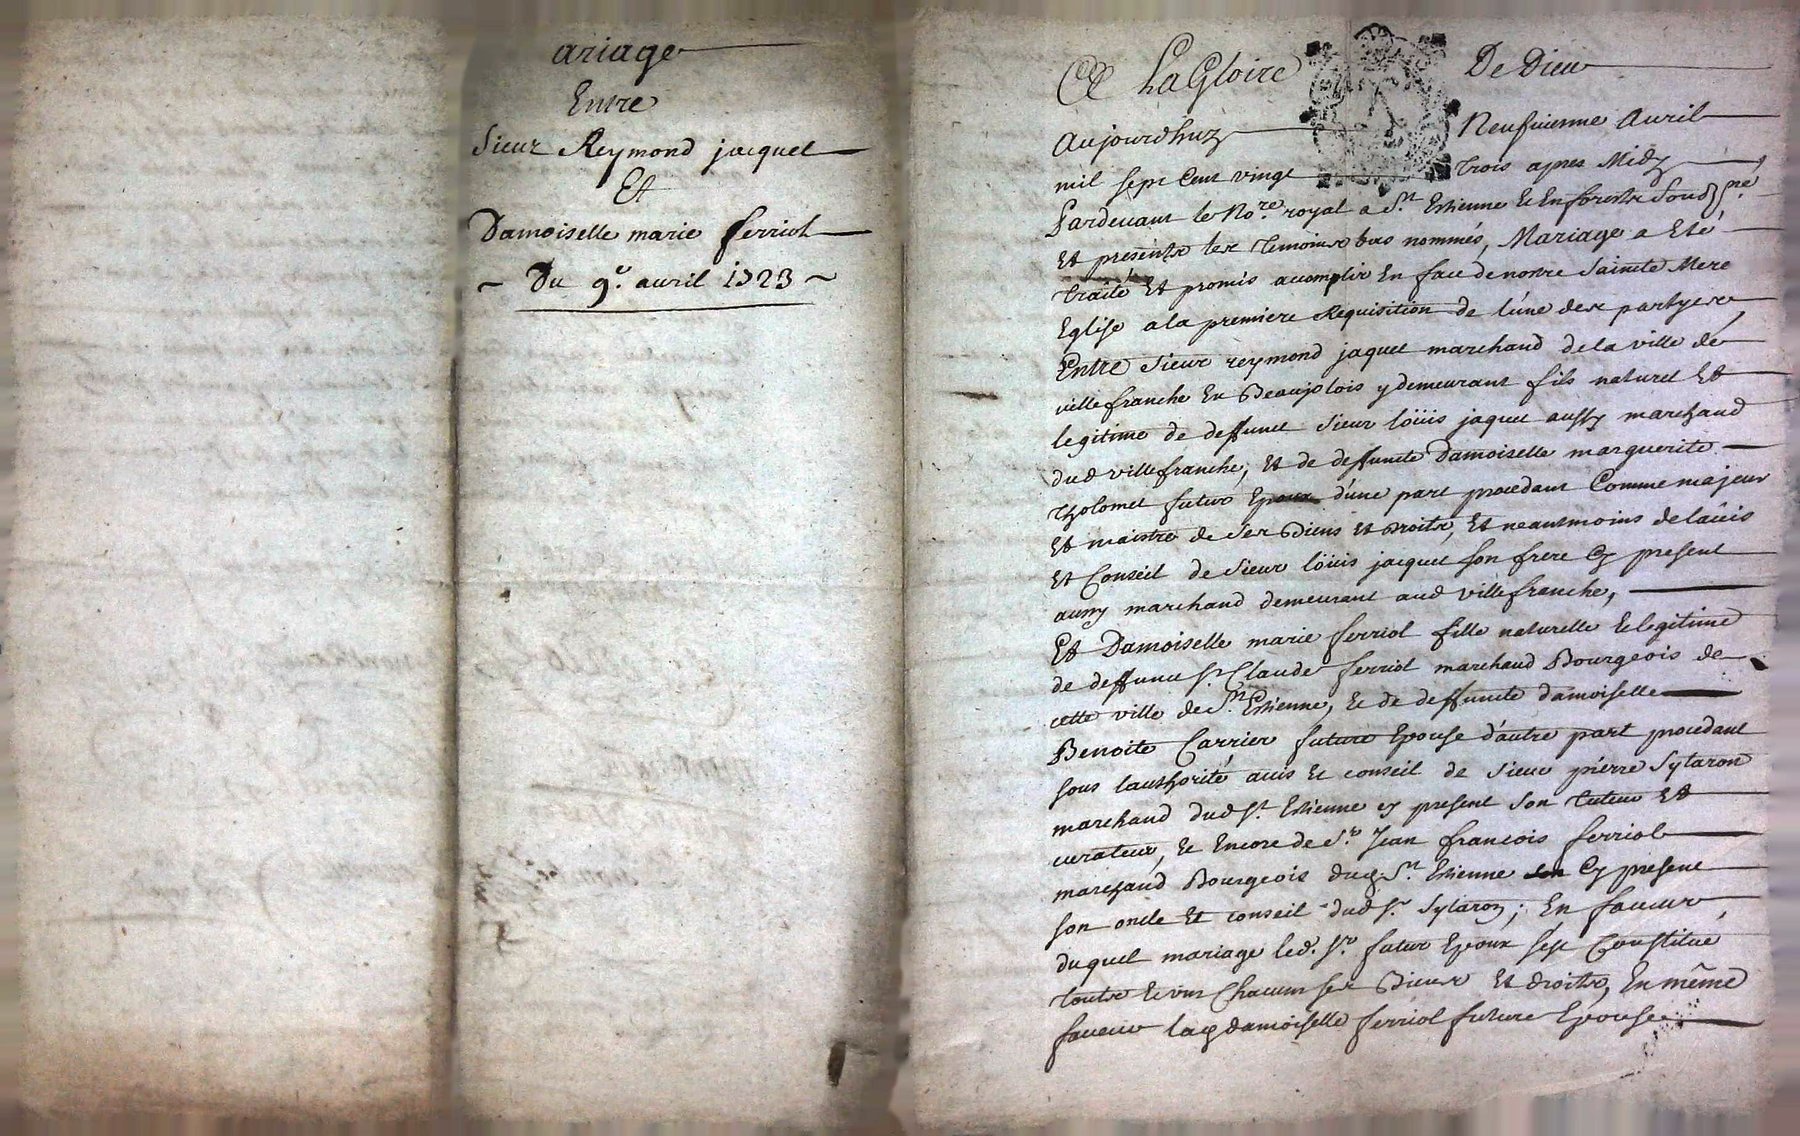 ariage
Entre
Sieur Reymond jacquet
Et
Damoiselle marie ferriol
~ Du 9e. avril 1723 ~
A La Gloire De Dieu
Aujourdhuy Neufvieme Avril
mil sept Cent vingt trois apres Midy
Pardevant le No.re royal a St. Estienne En forestz Soubz.né
Et presents les temoins bas nommés, Mariage a Eté
traité Et promis acomplir En face de nostre Sainte Mere
Eglise a la premiere Requisition de l'une des partyes
Entre Sieur reymond jaquet marchand de la ville de
villefranche En Beaujolois y demeurant fils naturel Et
legitime de deffunct Sieur loüis jaquet aussy marchand
dud villefranche, Et de deffuncte Damoiselle marguerite
tholomet futur Epoux d'une part procedant Comme majeur
Et maistre de ses Biens Et Droits, Et neantmoins de lavis
Et Conseil de Sieur loüis jacquet son frere Cy present
aussy marchand demeurant aud villefranche,
Et Damoiselle marie ferriol fille naturelle & legitime
de deffunct Sr Claude ferriol marchand Bourgeois de
cette ville de St. Estienne, & de deffuncte damoiselle
Benoite Carrier future Epouse d'autre part procedant
sous lauthorité avis & conseil de Sieur pierre Sytaron
marchand dud St. Estienne cy present son tuteur Et
curateur, & Encore de Sr. Jean francois ferriol
marchand Bourgeois dud St. Estienne Cy present
son oncle Et conseil dud Sr. Sytaron; En faveur
duquel mariage led. Sr. futur Epoux sest Constitué
touts & uns Chacuns ses Biens Et droits, En même
faveur lad damoiselle ferriol future Epouse